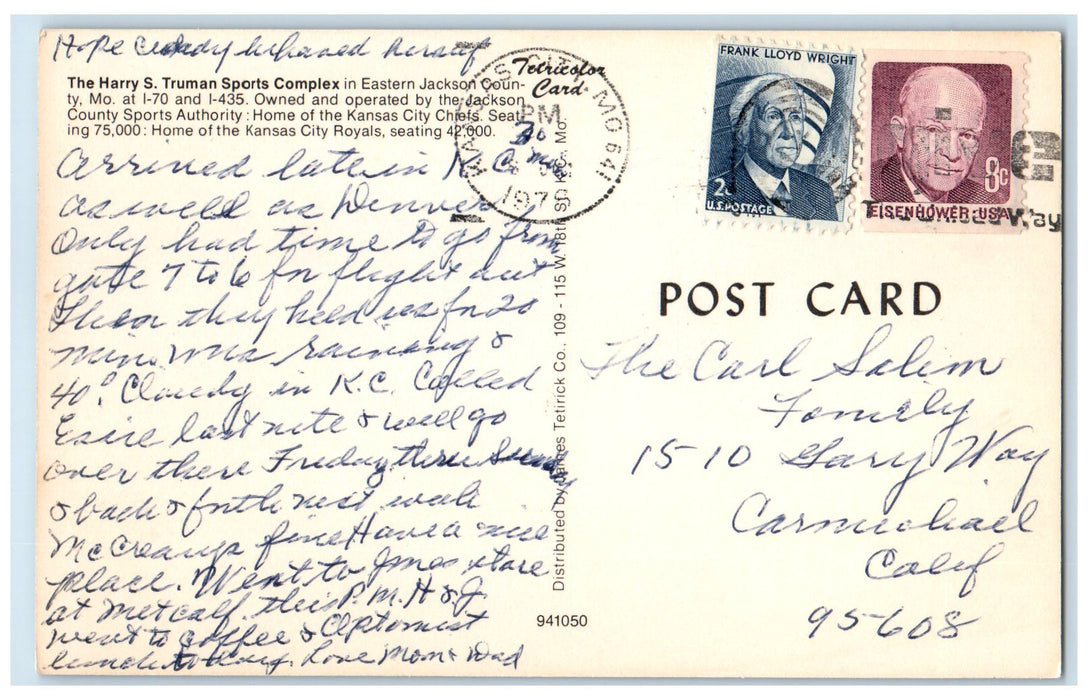 Hope Cindy behaved herself
The Harry S. Truman Sports Complex in Eastern Jackson Coun-
ty, Mo. at I-70 and I-435. Owned and operated by the Jackson
County Sports Authority: Home of the Kansas City Chiefs. Seat-
ing 75,000: Home of the Kansas City Royals, seating 42,000.
Tetricolor
Card
KANSAS CITY, MO 641
PM
197
FRANK LLOYD WRIGHT
2¢
U.S. POSTAGE
8c
EISENHOWER·USA
Way
arrived late in K.C.
as well as Denver
Only had time to go from
gate 7 to 6 for flight out
Then they held us for 20
min. was raining &
40°. Cloudy in K.C. Called
last nite & will go
over there Friday thru Sun
& back & forth next week
McCreary's fine Have a nice
place. Went to Jones store
at Metcalf this P.M. H & J
went to coffee & Optomist
lunch today. Love Mom & Dad
Distributed by James Tetirick Co., 109 - 115 W. 18th St., K.C., Mo.
941050
POST CARD
The Carl Salim
Family
1510 Gary Way
Carmichael
Calif
95608